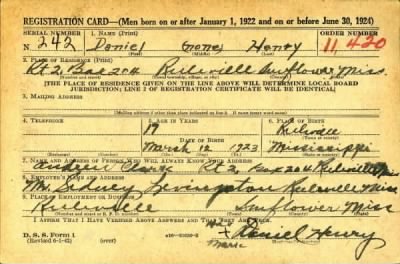 REGISTRATION CARD—(Men born on or after January 1, 1922 and on or before June 30, 1924)
SERIAL NUMBER 1. NAME (Print) ORDER NUMBER
N 242 Daniel Henry 11,420
2. PLACE OF RESIDENCE (Print)
Rt 2 Box 204 Ruleville Sunflower Miss.
[THE PLACE OF RESIDENCE GIVEN ON THE LINE ABOVE WILL DETERMINE LOCAL BOARD
JURISDICTION; LINE 2 OF REGISTRATION CERTIFICATE WILL BE IDENTICAL]
3. MAILING ADDRESS
4. TELEPHONE 5. AGE IN YEARS 6. PLACE OF BIRTH
19 Ruleville
DATE OF BIRTH
March 12 1923 Mississippi
7. NAME AND ADDRESS OF PERSON WHO WILL ALWAYS KNOW YOUR ADDRESS
Rt 2, Box 204 Ruleville Miss
8. EMPLOYER'S NAME AND ADDRESS
Mr. Sidney Levingston Ruleville Miss
9. PLACE OF EMPLOYMENT OR BUSINESS
Ruleville Sunflower Miss
I AFFIRM THAT I HAVE VERIFIED ABOVE ANSWERS AND THAT THEY ARE TRUE.
D. S. S. Form 1
(Revised 6-1-42)
Daniel Henry
mark